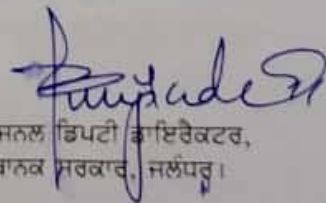 ਜਨਲ ਡਿਪਟੀ ਡਾਇਰੈਕਟਰ,
ਥਾਨਕ ਸਰਕਾਰ, ਜਲੰਧਰ।